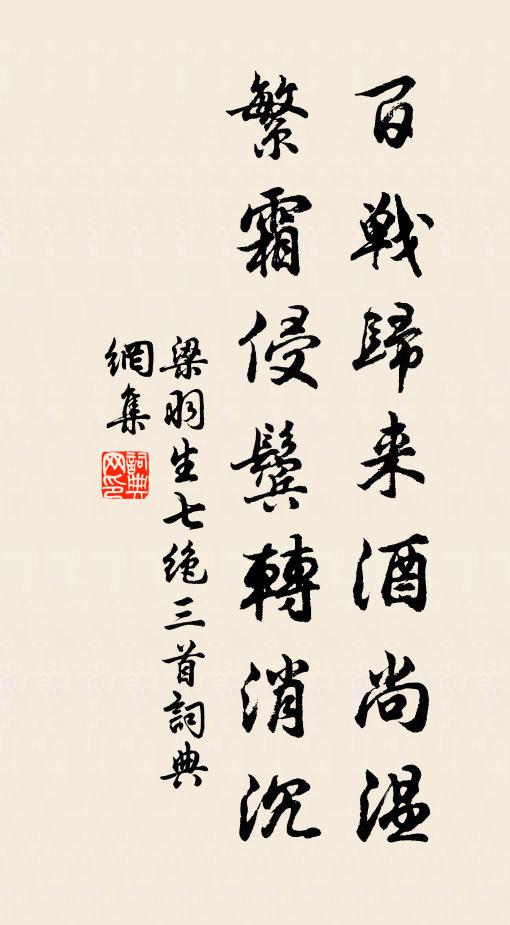 百戰歸来酒尚温
繁霜侵鬓轉消沉
梁羽生七绝三首詞典
網集
詞典
网印